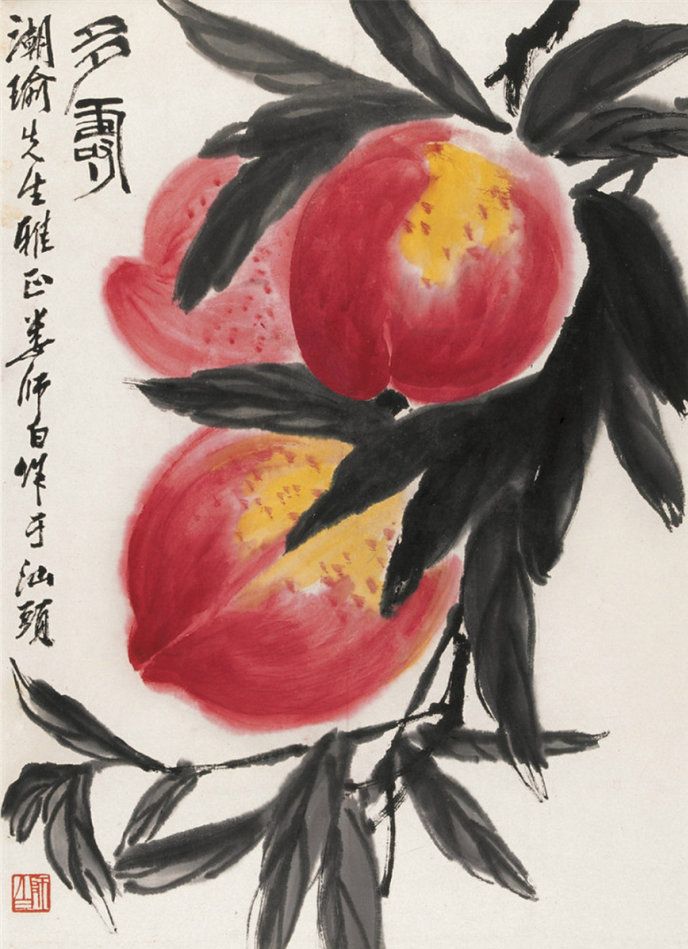 多壽
潮瑜先生雅正娄师白作于汕頭